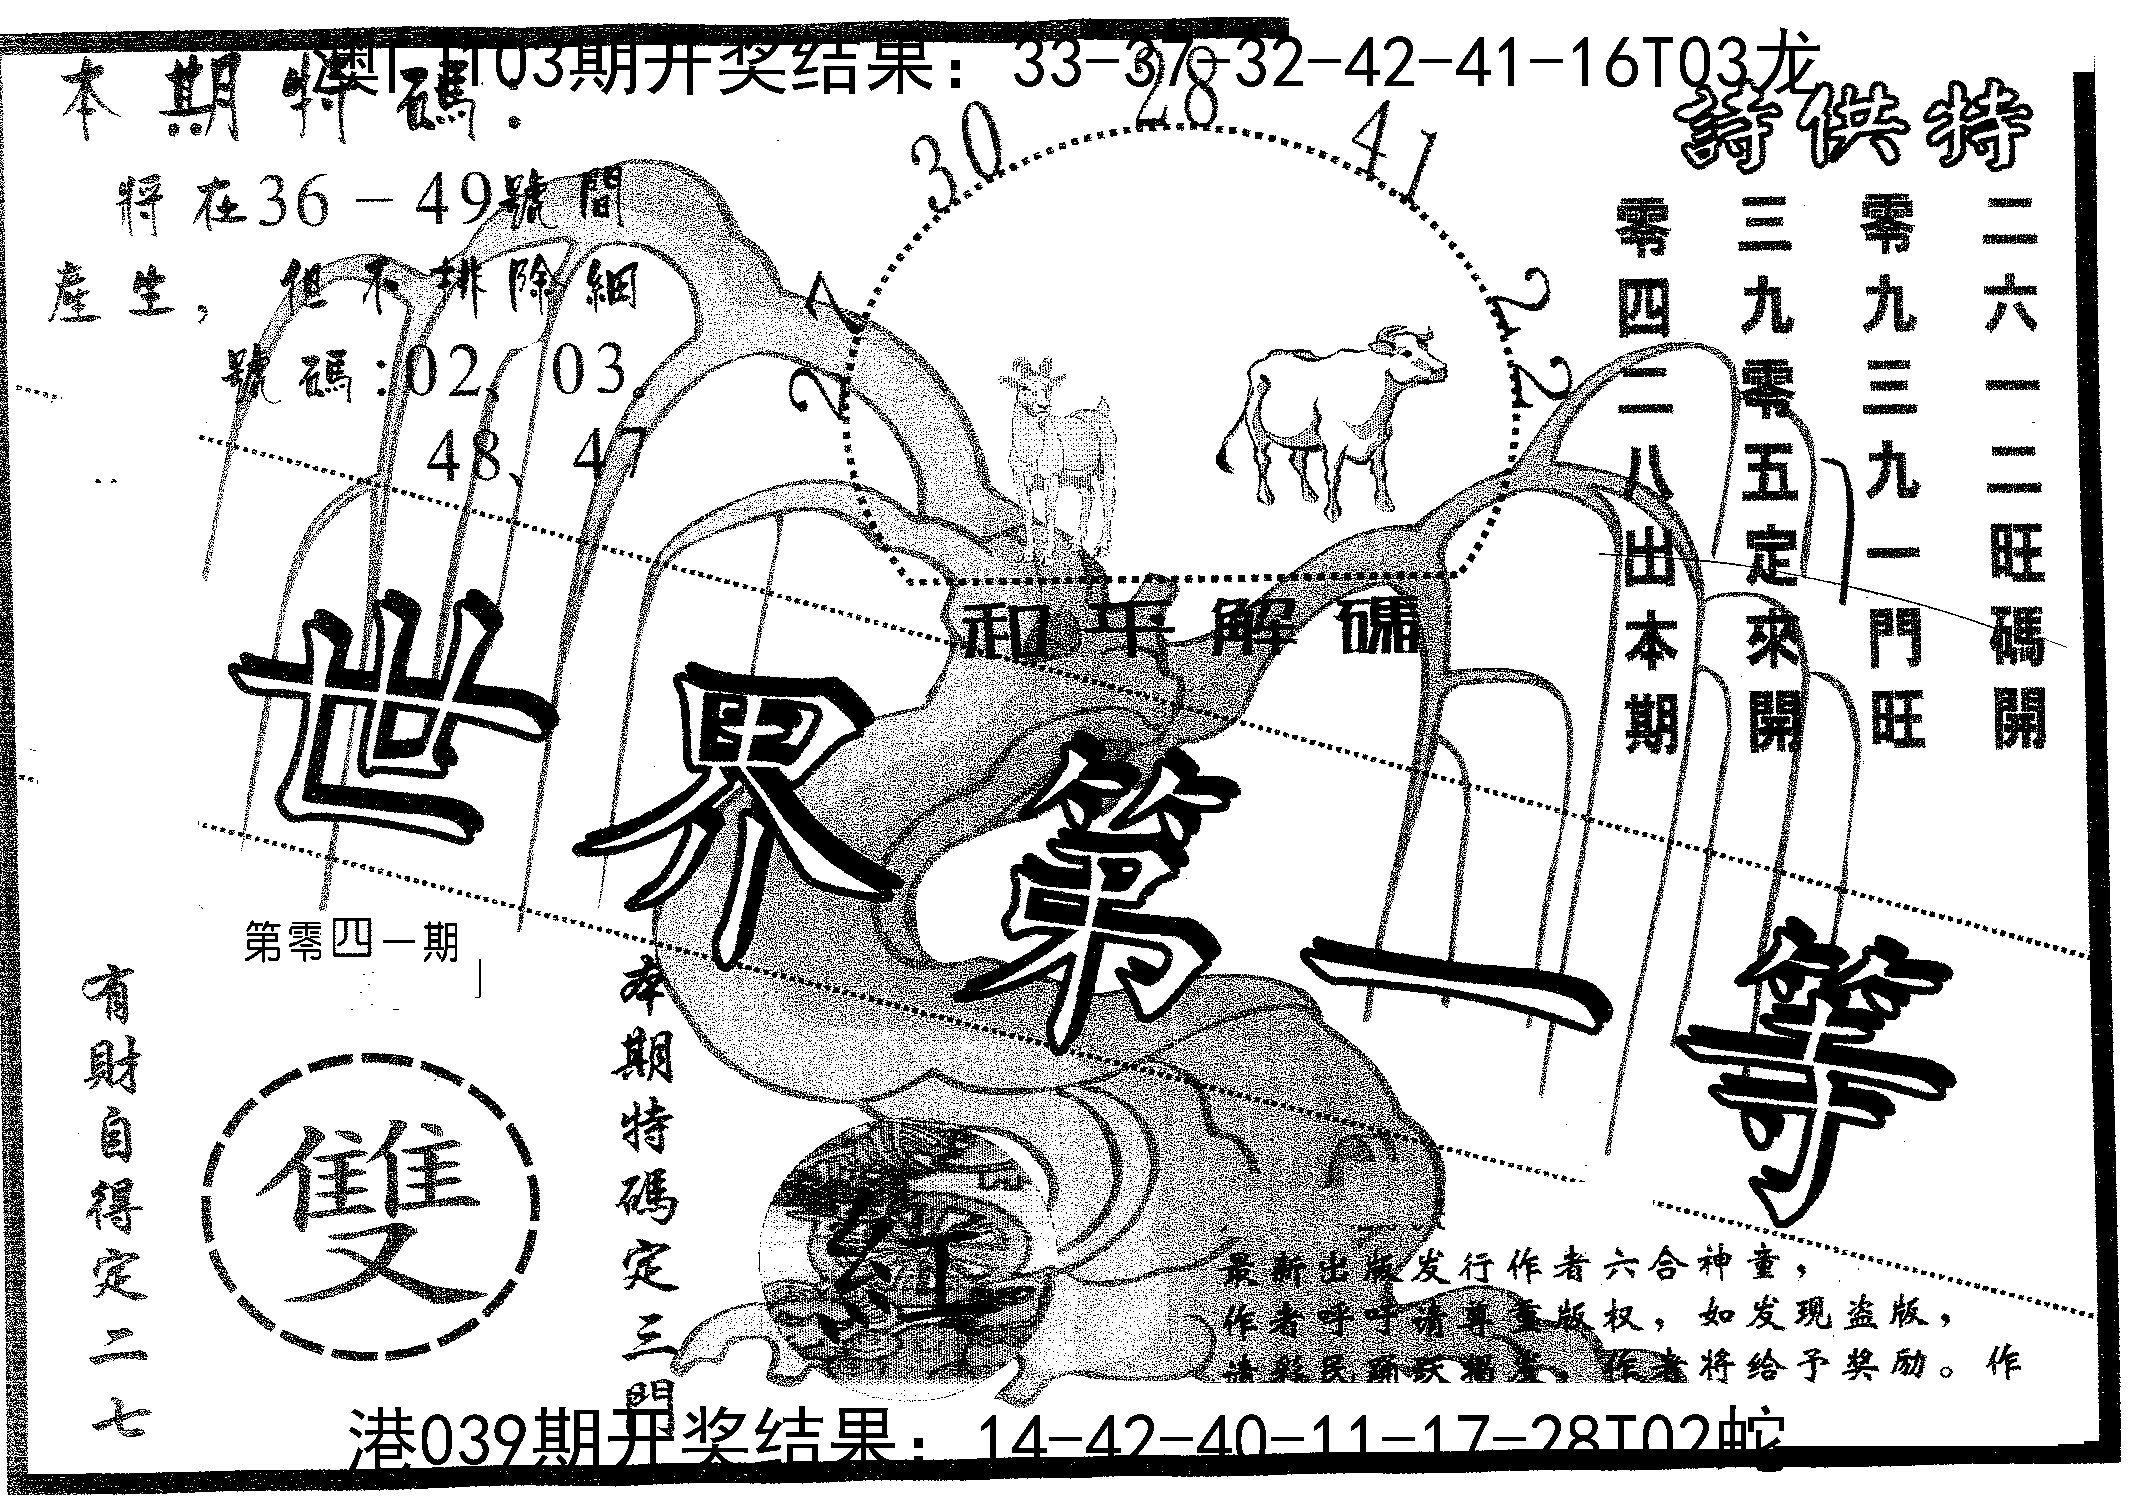 澳门103期开奖结果：33-37-32-42-41-16T03龙
本期特碼：
將在36-49號間
產生，但不排除細
號碼:02、03.
48、47
30
28
41
22
特供詩
二六一二旺碼開
零九三九一門旺
三九零五定來開
零四二八出本期
和平解碼
世界第一等
第零四一期
有財自得定二七
雙
本期特碼定三門
紅
最新出版发行作者六合神童，
作者呼吁请尊重版权，如发现盗版，
请彩民踊跃揭发，作者将给予奖励。作
港039期开奖结果：14-42-40-11-17-28T02蛇